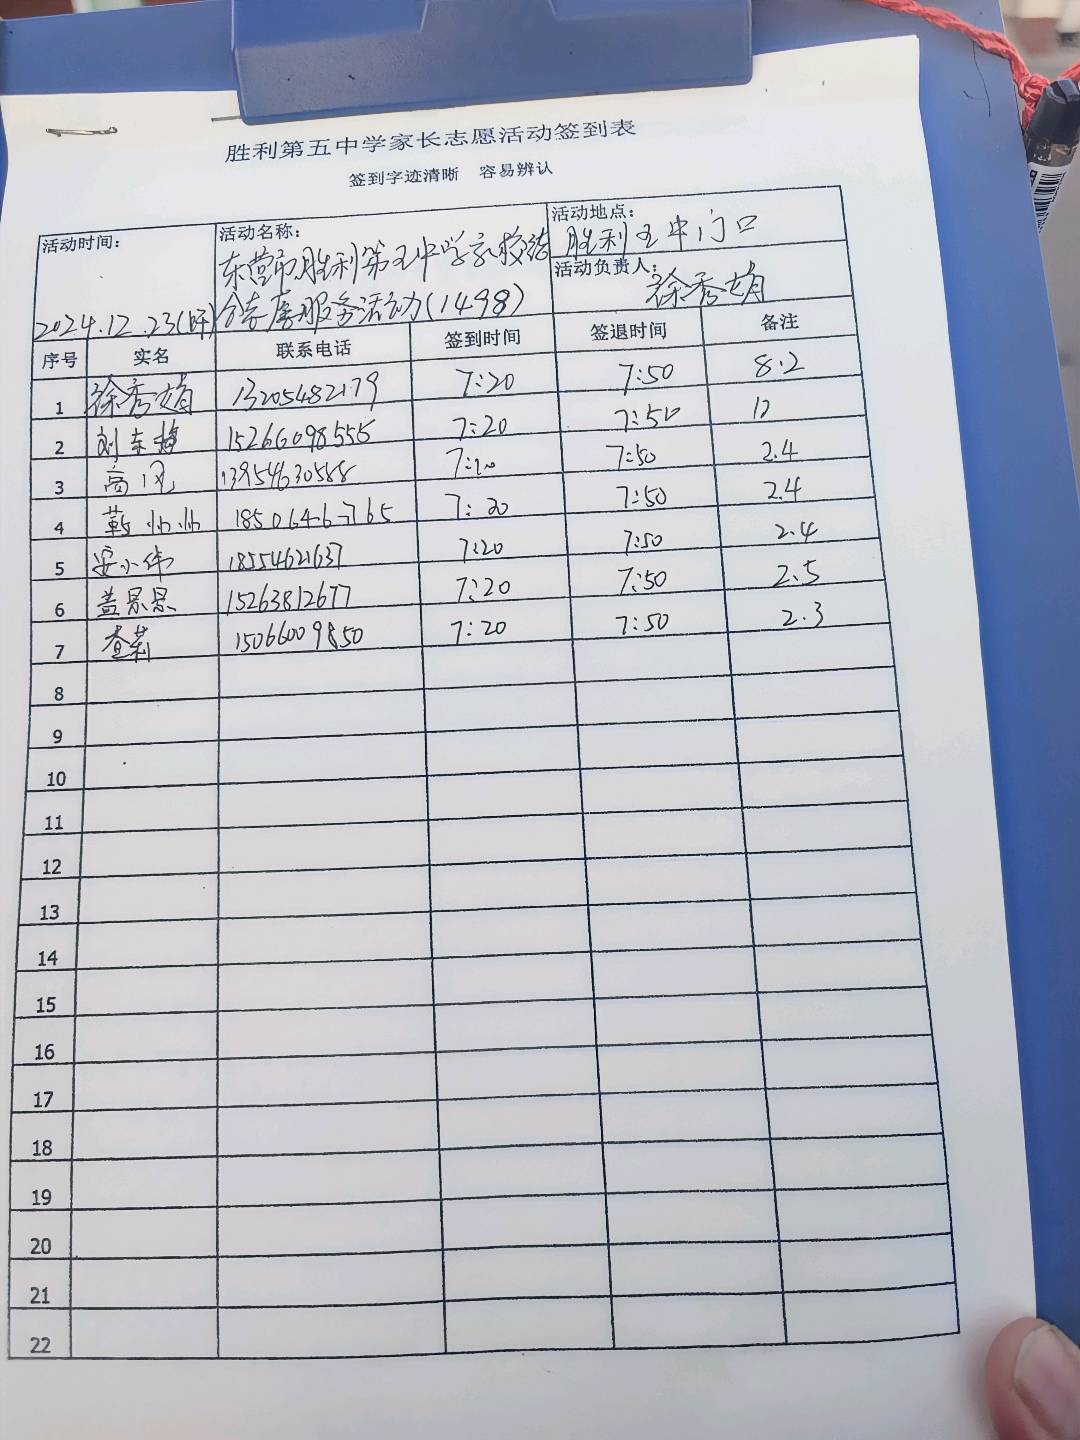 胜利第五中学家长志愿活动签到表
签到字迹清晰 容易辨认
活动时间： 2024.12.23(上午)
活动名称： 东营市胜利第五中学家校
服务活动(1498)
活动地点： 胜利五中门口
活动负责人： 徐秀娟
序号 实名 联系电话 签到时间 签退时间 备注
1 徐秀娟 13205482179 7:20 7:50 8.2
2 刘东梅 15266098555 7:20 7:50 12
3 高风 13954630588 7:20 7:50 2.4
4 靳帅帅 18506467765 7:20 7:50 2.4
5 安小伟 18554621637 7:20 7:50 2.4
6 盖景景 15263812677 7:20 7:50 2.5
7 查莉 15066009850 7:20 7:50 2.3
8
9
10
11
12
13
14
15
16
17
18
19
20
21
22